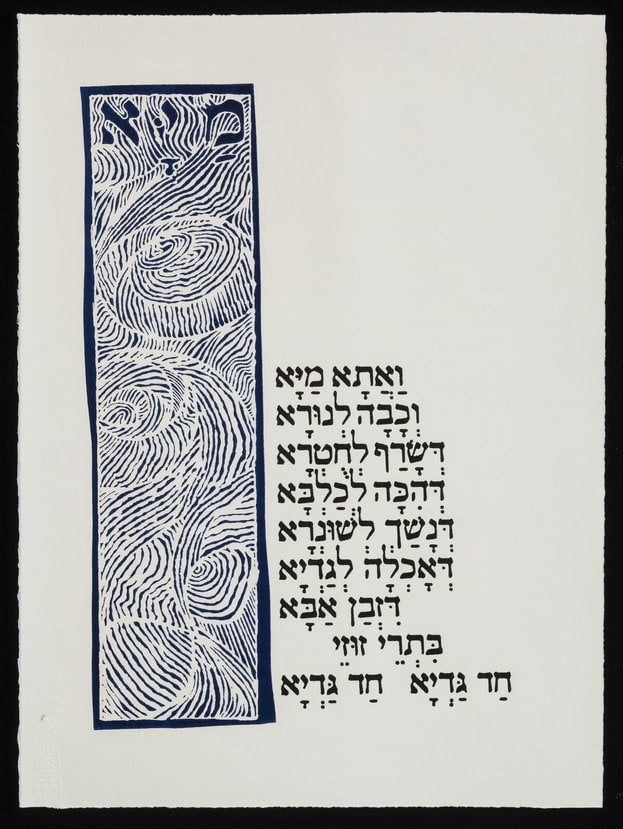 מַיָּא
וַאֲתָא מַיָּא
וְכָבָה לְנוּרָא
דְּשָׂרַף לְחֻטְרָא
דְּהִכָּה לְכַלְבָּא
דְּנָשַׁךְ לְשׁוּנְרָא
דְּאָכְלָה לְגַדְיָא
דִּזְבַן אַבָּא
בִּתְרֵי זוּזֵי
חַד גַּדְיָא חַד גַּדְיָא